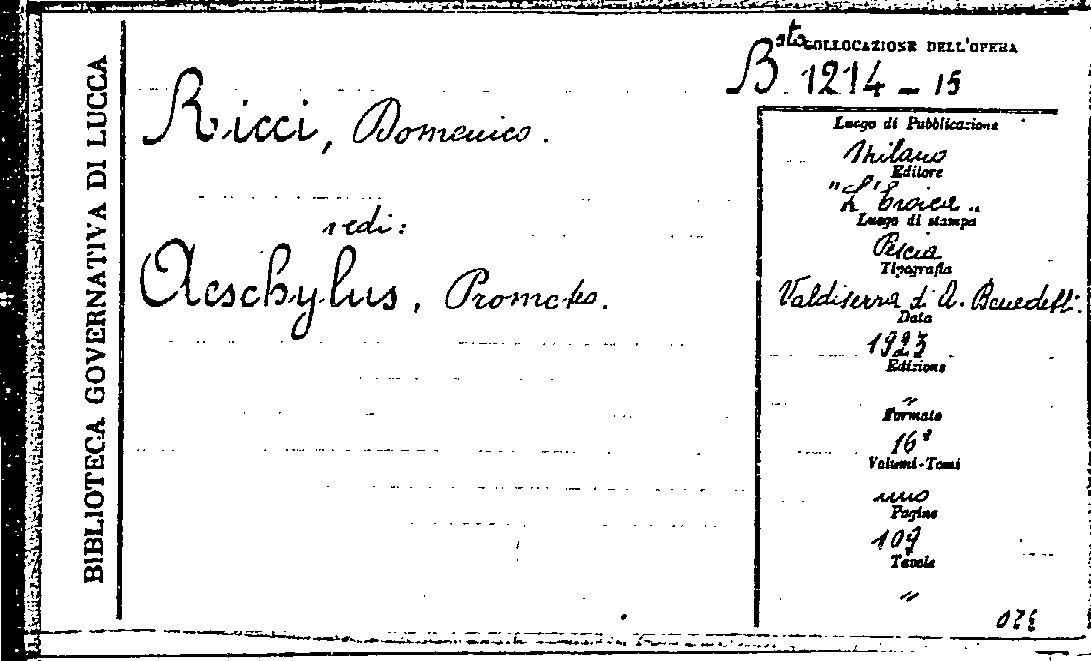 BIBLIOTECA GOVERNATIVA DI LUCCA
Ricci, Domenico.
vedi:
Aeschylus, Prometeo.
COLLOCAZIONE DELL'OPERA
B.sta 1214 - 15
Luogo di Pubblicazione
Milano
Editore
"L'Eroica"
Luogo di stampa
Pescia
Tipografia
Valdiserra d' A. Benedetti.
Data
1923
Edizione
"
Formato
16°
Volumi-Tomi
uno
Pagine
109
Tavole
"